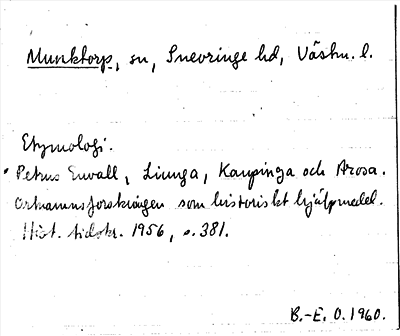 Munktorp, sn, Snevringe hd, Västm. l.
Etymologi.
Petrus Envall, Liunga, Kaupinga och Arosa.
Ortnamnsforskningen som historiskt hjälpmedel.
Hist. tidskr. 1956, s. 381.
B.-E. O. 1960.